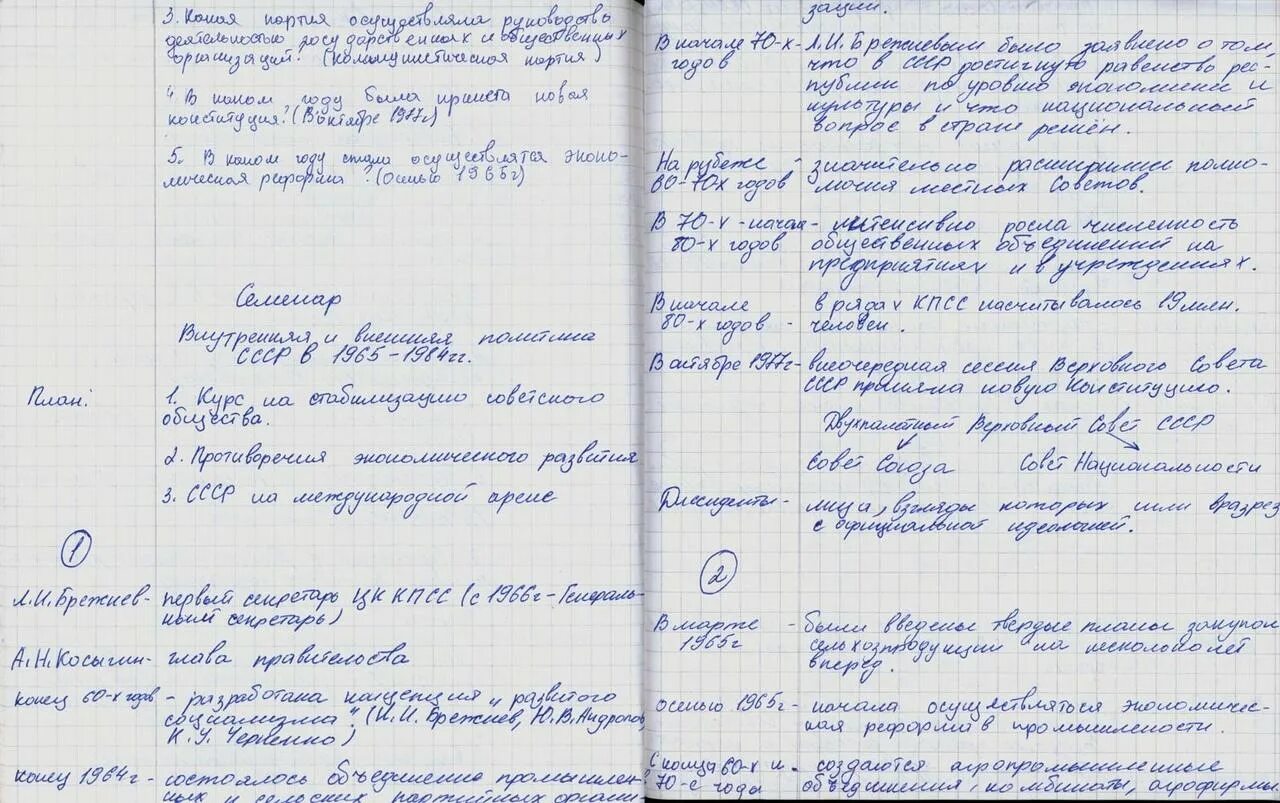 3. Какая партия осуществляла руководство
деятельностью государственных и общественных
организаций? (коммунистическая партия)
4 В каком году была принята новая
конституция? (В октябре 1977г)
5. В каком году стала осуществлятся эконо-
мическая реформа? (осенью 1965г)
Семенар
Внутренняя и внешняя политика
СССР в 1965-1984гг.
План: 1. Курс на стабилизацию советского
общества.
2. Противоречия экономического развития
3. СССР на международной арене
1
Л.И.Брежнев- первый секретарь ЦК КПСС (с 1966г-Генераль-
ный секретарь)
А.Н.Косыгин- глава правительства
конец 60-х годов - разработана концепция "развитого
социализма" (Л.И. Брежнев, Ю.В.Андропов,
К.У. Черненко)
конец 1964г- состоялось объединение промышлен-
ных и сельских партийных органи-
зации.
В начале 70-х- Л.И.Брежневым было заявлено о том,
годов что в СССР достигнуто равенство рес-
публик по уровню экономики и
культуры и что национальный
вопрос в стране решён.
На рубеже - значительно расширили полно-
60-70х годов мочия местных Советов.
В 70-х - начал- интенсивно росла численность
80-х годов общественных объединений на
предприятиях и в учреждениях.
В начале в рядах КПСС насчитывалось 19 млн.
80-х годов - человек.
В октябре 1977г- внеочередная сессия Верховного Совета
СССР приняла новую Конституцию.
Двухпалатный Верховный Совет СССР
Совет Союза Совет Национальности
Диссиденты- лица, взгляды которых шли вразрез
с официальной идеологией.
2
В марте - были введены твердые планы закупок
1965г сельхозпродукции на несколько лет
вперед.
осенью 1965г- начала осуществляться экономичес-
кая реформа в промышлености.
С конца 60-х и - создаются агропромышленные
70-е годы объединения, комбинаты, агрофирмы